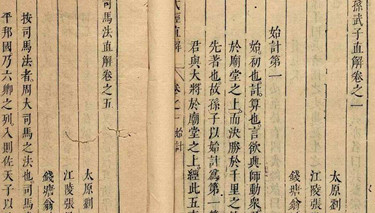 孫武子直解卷之一
太原劉
江陵張
錢塘翁
始計第一
始初也計算也言欲興師動衆
於廟堂之上而決勝於千里之
先著也故孫子以始計爲第一
君與大將於廟堂之上經此五
經直解 卷之一 始計
司馬法直解卷之五
太原劉
江陵張
錢塘翁
按司馬法者周大司馬之法也司馬
平邦國乃六卿之列入則佐天子以